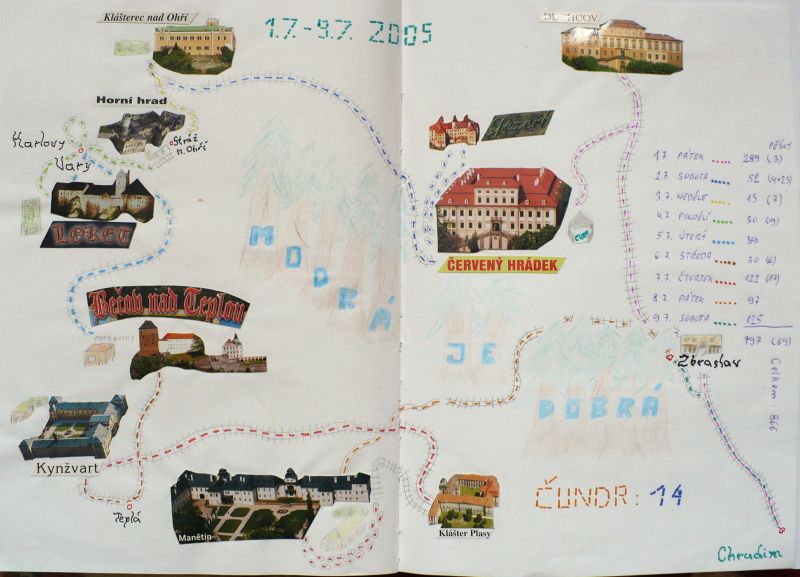 Klášterec nad Ohří
1.7.-9.7. 2005
DUCHCOV
Horní hrad
Karlovy
Vary
Stráž
n. Ohří
LOKET
Jezeří
MODRÁ
ČERVENÝ HRÁDEK
PĚŠKY
1.7. PÁTEK 289 (3)
2.7. SOBOTA 52 (4+25)
3.7. NEDĚLE 15 (7)
4.7. PONDĚLÍ 30
5.7. ÚTERÝ
6.7. STŘEDA 30 (6)
7.7. ČTVRTEK 122 (17)
8.7. PÁTEK 97
9.7. SOBOTA 125
797 (69)
Celkem 866
Bečov nad Teplou
POTRAVINY
JE
DOBRÁ
Zbraslav
Kynžvart
Teplá
Manětín
Klášter Plasy
ČUNDR: 14
Chrudim